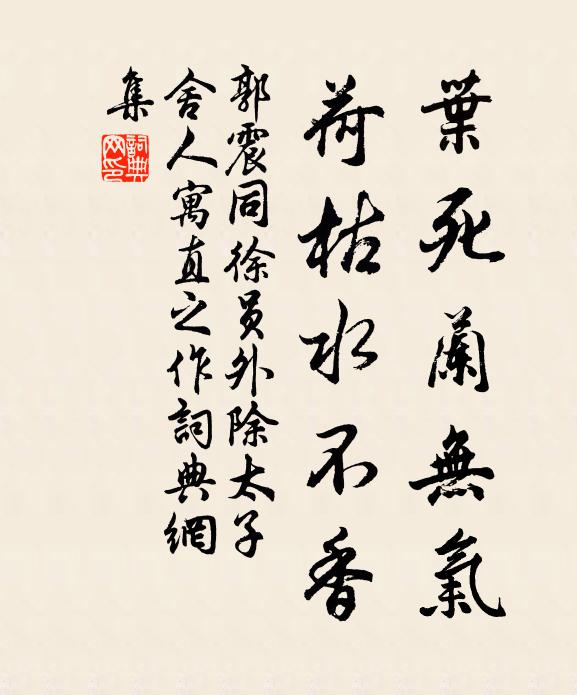 葉死蘭無氣
荷枯水不香
郭震同徐員外除太子
舍人寓直之作詞典網
集
詞典
网印